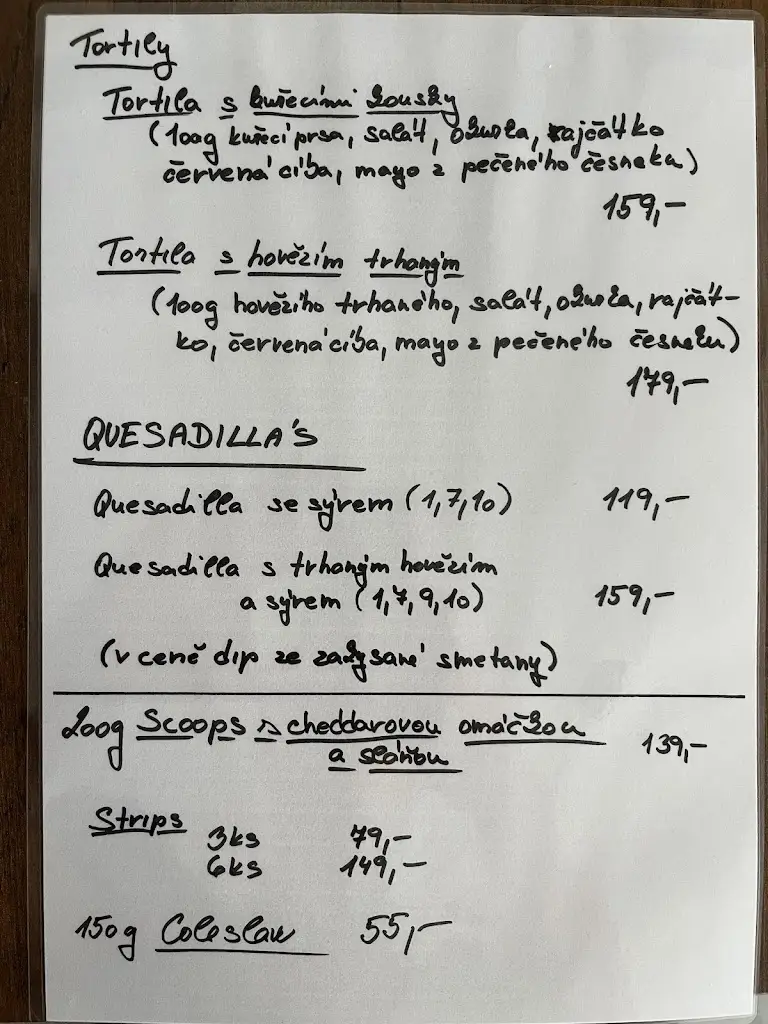 Tortily
Tortila s kuřecími kousky
(100g kuřecí prsa, salát, okurka, rajčátko
červená cíba, mayo z pečeného česneku)
159,-
Tortila s hovězím trhaným
(100g hovězího trhaného, salát, okurka, rajčát-
ko, červená cíba, mayo z pečeného česneku)
179,-
QUESADILLA'S
Quesadilla se sýrem (1,7,10) 119,-
Quesadilla s trhaným hovězím
a sýrem (1,7,9,10) 159,-
(v ceně dip ze zakysané smetany)
200g Scoops s cheddarovou omáčkou
a slaninou 139,-
Strips
3ks 79,-
6ks 149,-
150g Coleslaw 55,-